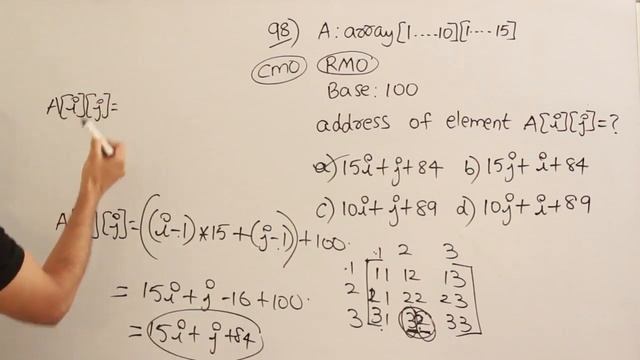 98) A: array[1----10][1----15]
CMO RMO
Base: 100
address of element A[i][j]=?
a) 15i+j+84 b) 15j+i+84
c) 10i+j+89 d) 10j+i+89
A[i][j]=
A[i][j]=((i-1)*15+(j-1))+100.
= 15i+j-16+100.
= 15i+j+84
1 2 3
1 11 12 13
2 21 22 23
3 31 32 33